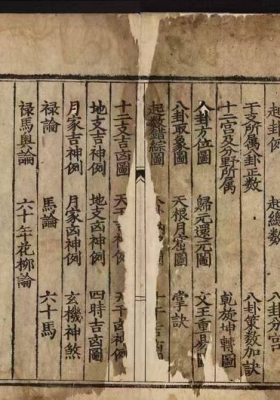 起卦例　起總數　八卦分宮
干支所属卦正數　八卦策数加訣
十二宮及分野所属　乾旋坤轉圖
八卦方位圖　歸元還元圖　文王重易圖
八卦取象圖　天根月窟圖　掌訣
起數錯綜圖
十二支吉凶圖　天　吉凶圖
地支吉神例　地支凶神例　四時吉凶圖
月家吉神例　月家凶神例　玄機神煞
禄論　馬論　六十馬
禄馬奥論　六十年花柳論